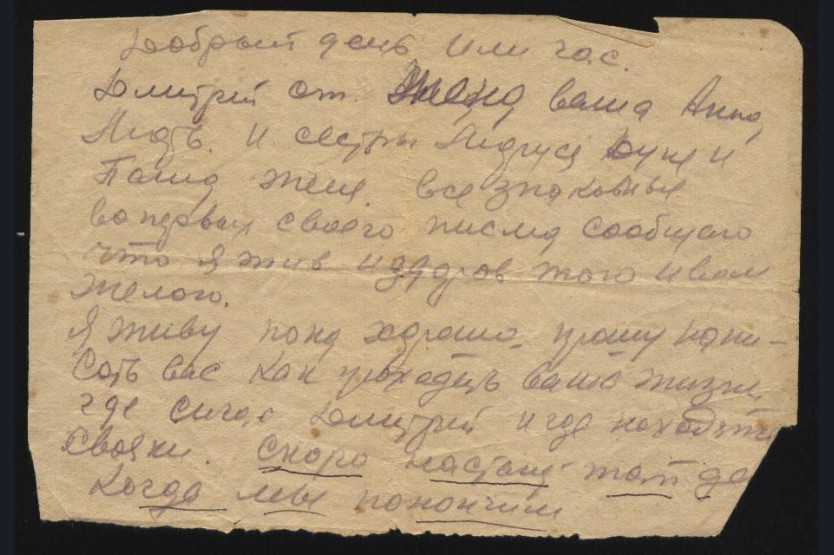 Добрый день или час.
Дмитрий от Жена ваша Анна,
Мать. и сестры Маруся Дуня и
Паша Женя. все знакомые
вопервых своего писма сообщаю
что я жив и здоров того и вам
желаю.
я живу пока хорошо. прошу напи-
сать вас как проходить ваша жизнь
где сичас Дмитрий и где находятся
свояки. скоро настанит тот де
когда мы покончим